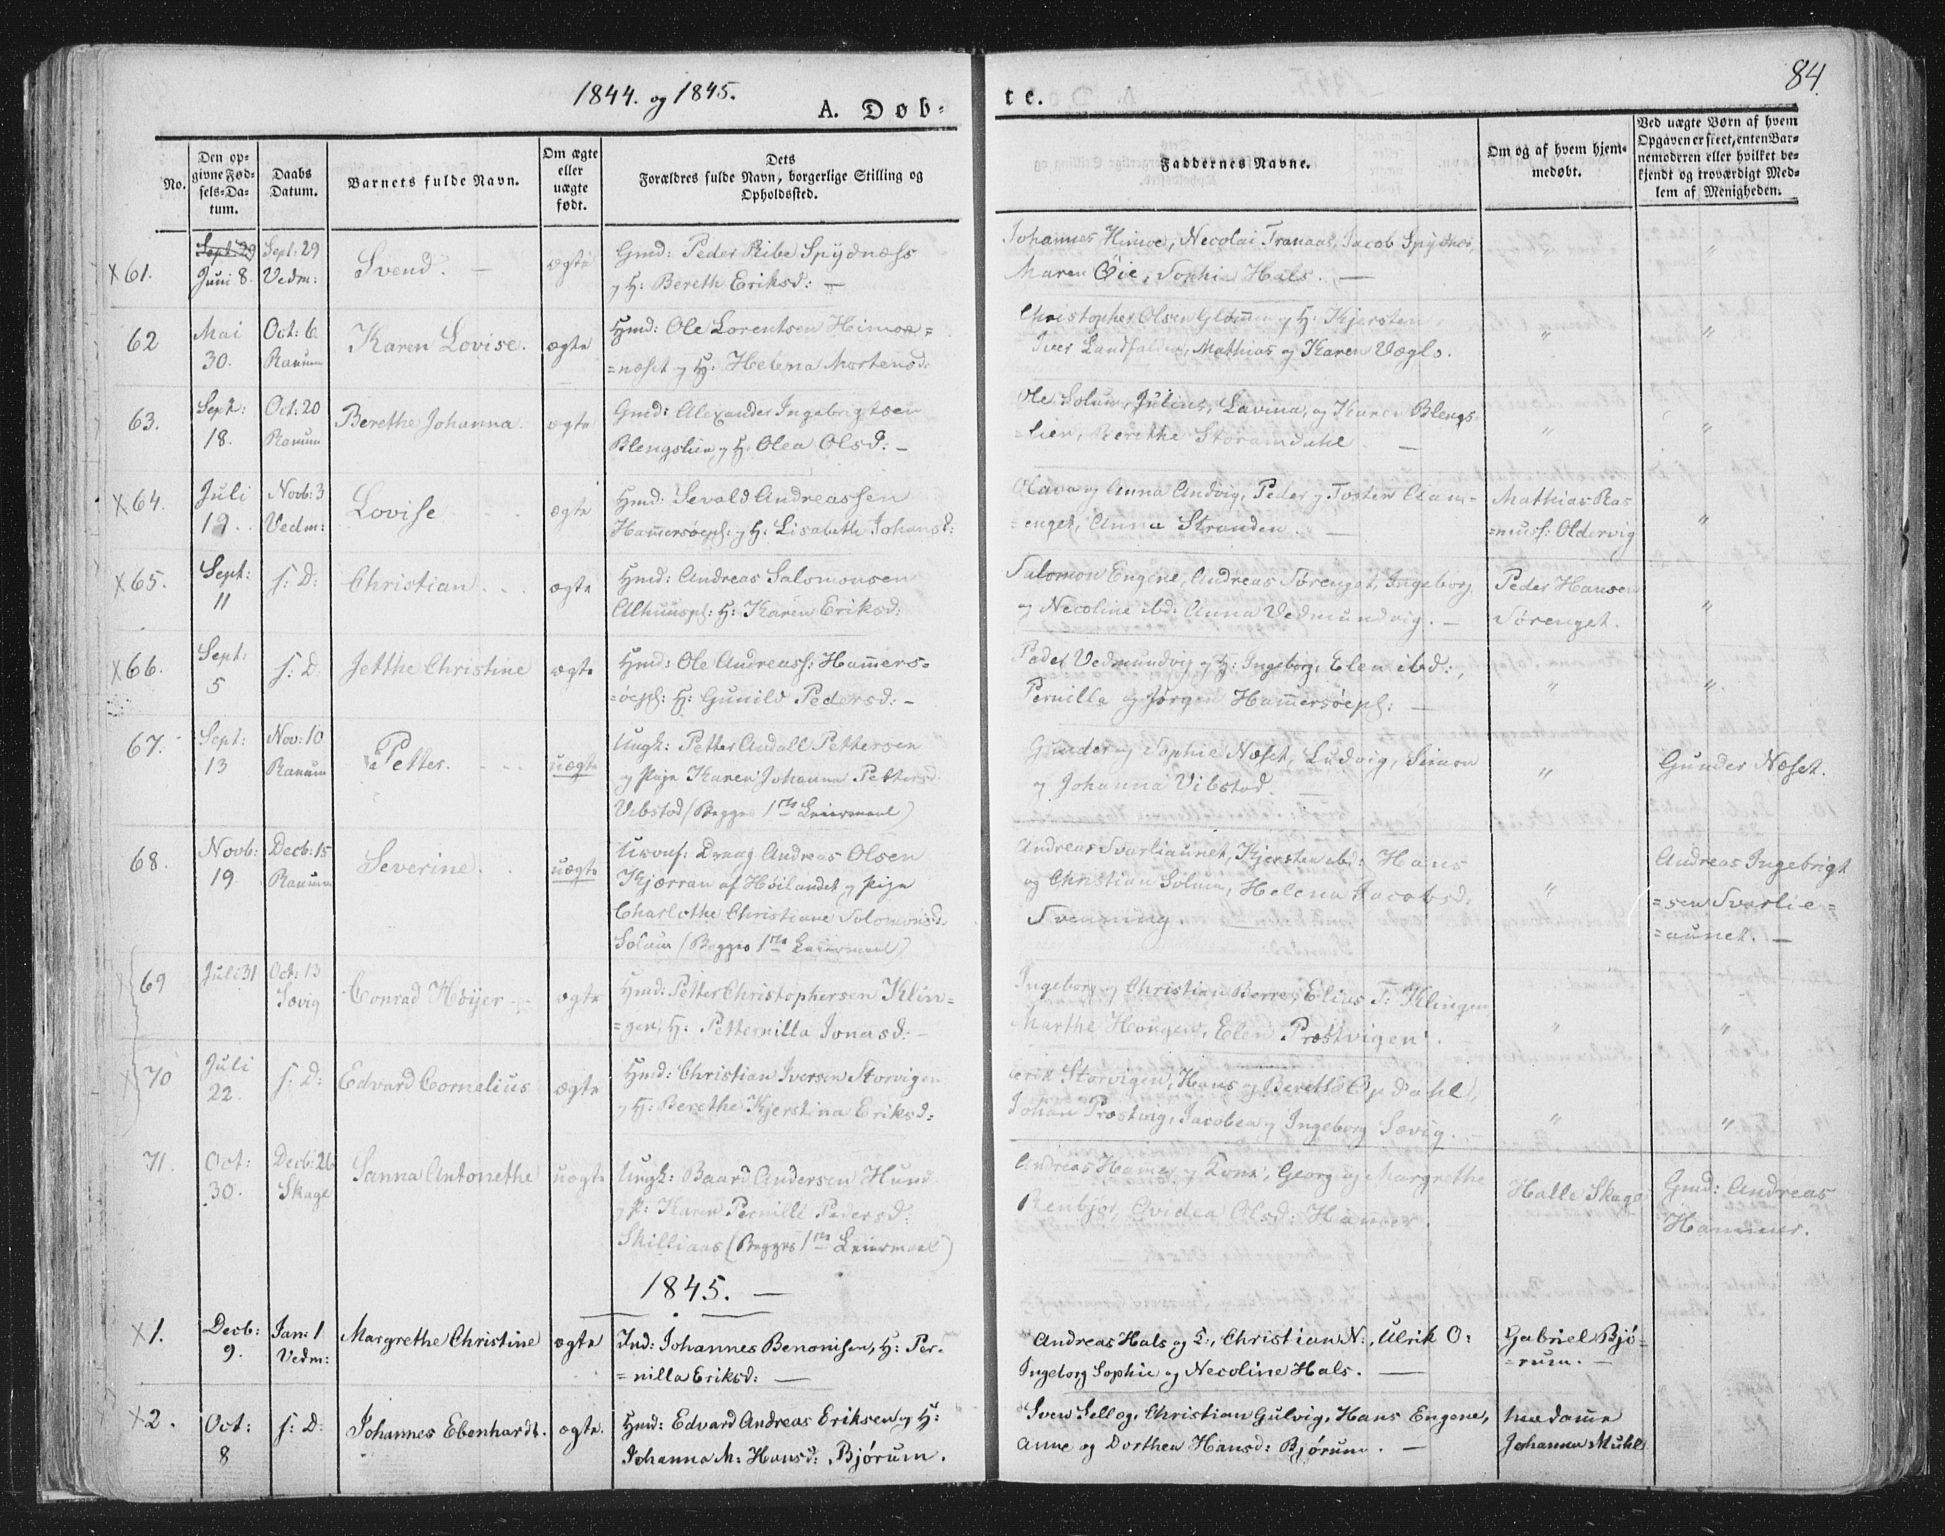 1844. og 1845.
A. Døb-
te.
84.
No.
Den op-
givne Fød-
sels-Da-
tum.
Daabs
Datum.
Barnets fulde Navn.
Om ægte
eller
uægte
født.
Dets
Forældres fulde Navn, borgerlige Stilling og
Opholdssted.
Faddernes Navne.
Om og af hvem hjem-
medøbt.
Ved uægte Børn af hvem
Opgaven er skeet, enten Bar-
nemoderen eller hvilket be-
kjendt og troværdigt Med-
lem af Menigheden.
X 61.
Sept: 29
Juni 8.
Sept: 29
Vedm:
Svend. —
ægte
Gmd: Peder Ribe Spydnæss
og H: Bereth Eriksd: —
Johannes Himoe, Necolai Tranaas, Jacob Spydnæs,
Maren Øie, Sophie Hals. —
"
62
Mai
30.
Oct: 6.
Ranum
Karen Lovise.
ægte
Hmd: Ole Lorentsen Heimoe=
=næset og H: Helena Mortensd:
Christopher Olsen Glømmen og H: Kjersten,
Iver Landfalden, Mathias og Karen Vægls.
"
"
63.
Sept:
18.
Oct: 20
Ranum
Berethe Johanna.
ægte
Gmd: Alexander Ingebrigtsen
Blengslien og H: Olea Olsd: —
Ole Solum, Julius, Lavina, og Karen Blengs
=lien, Berethe Storamdahl. —
"
"
X 64.
Juli
19.
Novb: 3
Vedm:
Lovise
ægte
Hmd: Sevald Andreassen
Hammersøepl: og H: Lisabeth Johansd:
Olava og Anna Andvig, Peder og Tosten Aam-
=enget, Anna Stranden. —
Mathias Ras
=muss: Oldervig
"
X 65.
Sept:
11
s: D:
Christian
ægte
Hmd: Andreas Salomonsen
Alhuuspl: H: Karen Eriksd:
Salomon Engene, Andreas Sørenget, Ingeborg
og Necoline ibd: Anna Vedmundvig. —
Peder Hansen
Sørenget.
"
X 66.
Sept:
5
s: D:
Jetthe Christine
ægte
Hmd: Ole Andreass: Hammers=
=øepl: H: Gunild Pedersd: —
Peder Vedmundvig og H: Ingeborg, Elen ibd:,
Pernilla og Jørgen Hammersøepl: —
"
"
67.
Sept:
13
Nov: 10
Ranum
Petter.
uægte
Ungk: Petter Andall Pettersen
og Pige Karen Johanna Pettersd:
Vibstod (Begges 1te Leiermaal)
Gunder og Sophie Næset, Ludvig, Simon
og Johanna Vibstod. —
"
Gunder Næset.
68.
Novb:
19.
Decb: 15
Ranum
Severine.
uægte
Andreas Olsen
Kjærran af Høilandet og Pige
Charlothe Christiane Solomonsd:
Solum (Begges 1te Leiermaal)
Andreas Svarliaunet, Kjersten ibd: Hans
og Christian Solum, Helena Jacobsd:
Svenning.
"
Andreas Ingebrigt
=sen Svarlie=
=aunet. —
69
Juli 31
Oct: 13
Sævig
Conrad Høyer
ægte
Hmd: Petter Christophersen Klin=
=gen, H: Petternilla Jonasd: —
Ingeborg og Christian Berre, Elius T: Klingen
Marthe Hougen, Elen Præstvigen.
"
"
X 70
Juli
22.
s: D:
Edvard Cornelius
ægte
Hmd: Christian Iversen Storvigen
og H: Berethe Kjerstina Eriksd:
Erik Storvigen, Hans og Berethe Opdahl,
Johan Præstvig, Jacobea og Ingeborg Sævig.
"
"
71.
Oct:
30.
Decb: 26
Skage
Sanna Antonethe
uægte
Ungk: Baard Andersen Hund
og P: Karen Pernille Pedersd:
Skilliaas (Begges 1te Leiermaal)
Andreas Hammer og Kone, Georg og Margrethe
Renbjør, Ovidea Olsd: Hammer.
Halle Skage
Gmd: Andreas
Hammer.
1845. —
X 1.
Decb:
9.
Jan: 1
Vedm:
Margrethe Christine
ægte
Ind: Johannes Benonisen, H: Per-
=nilla Eriksd: —
Andreas Hals og K:, Christian N:, Ulrik O:
Ingeborg Sophie og Necoline Hals. —
Gabriel Bjø-
=rum. —
X 2.
Oct:
8
s: D:
Johannes Ebenhardt.
ægte.
Hmd: Edvard Andreas Eriksen og H:
Johanna M: Hansd: Bjørum.
Sven Sellæg, Christian Gulvig, Hans Engene,
Anne og Dorthea Hansd: Bjørum. —
madame
Johanna Muhl